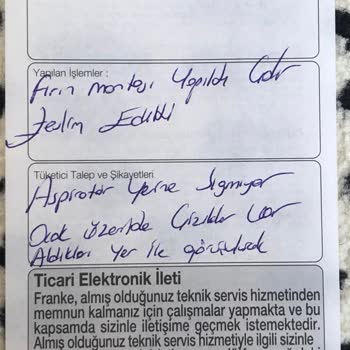 Yapılan İşlemler :
Fırın montajı Yapıldı
Teslim Edildi
Tüketici Talep ve Şikayetleri
Aspiratör Yerine sığmıyor
Ocak üzeride Çizikler var
Aldıkları Yer ile görüşülecek
Ticari Elektronik İleti
Franke, almış olduğunuz teknik servis hizmetinden
memnun kalmanız için çalışmalar yapmakta ve bu
kapsamda sizinle iletişime geçmek istemektedir.
Almış olduğunuz teknik servis hizmetiyle ilgili sizinle